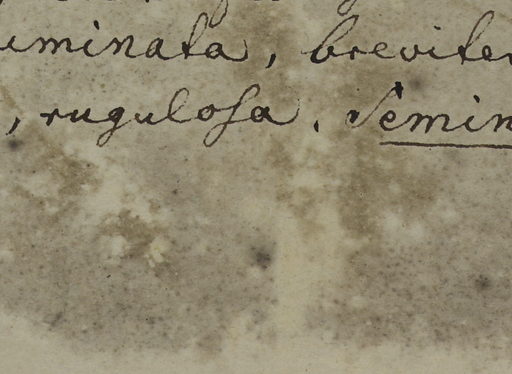 uminata, breviter
, rugulosa. Semin